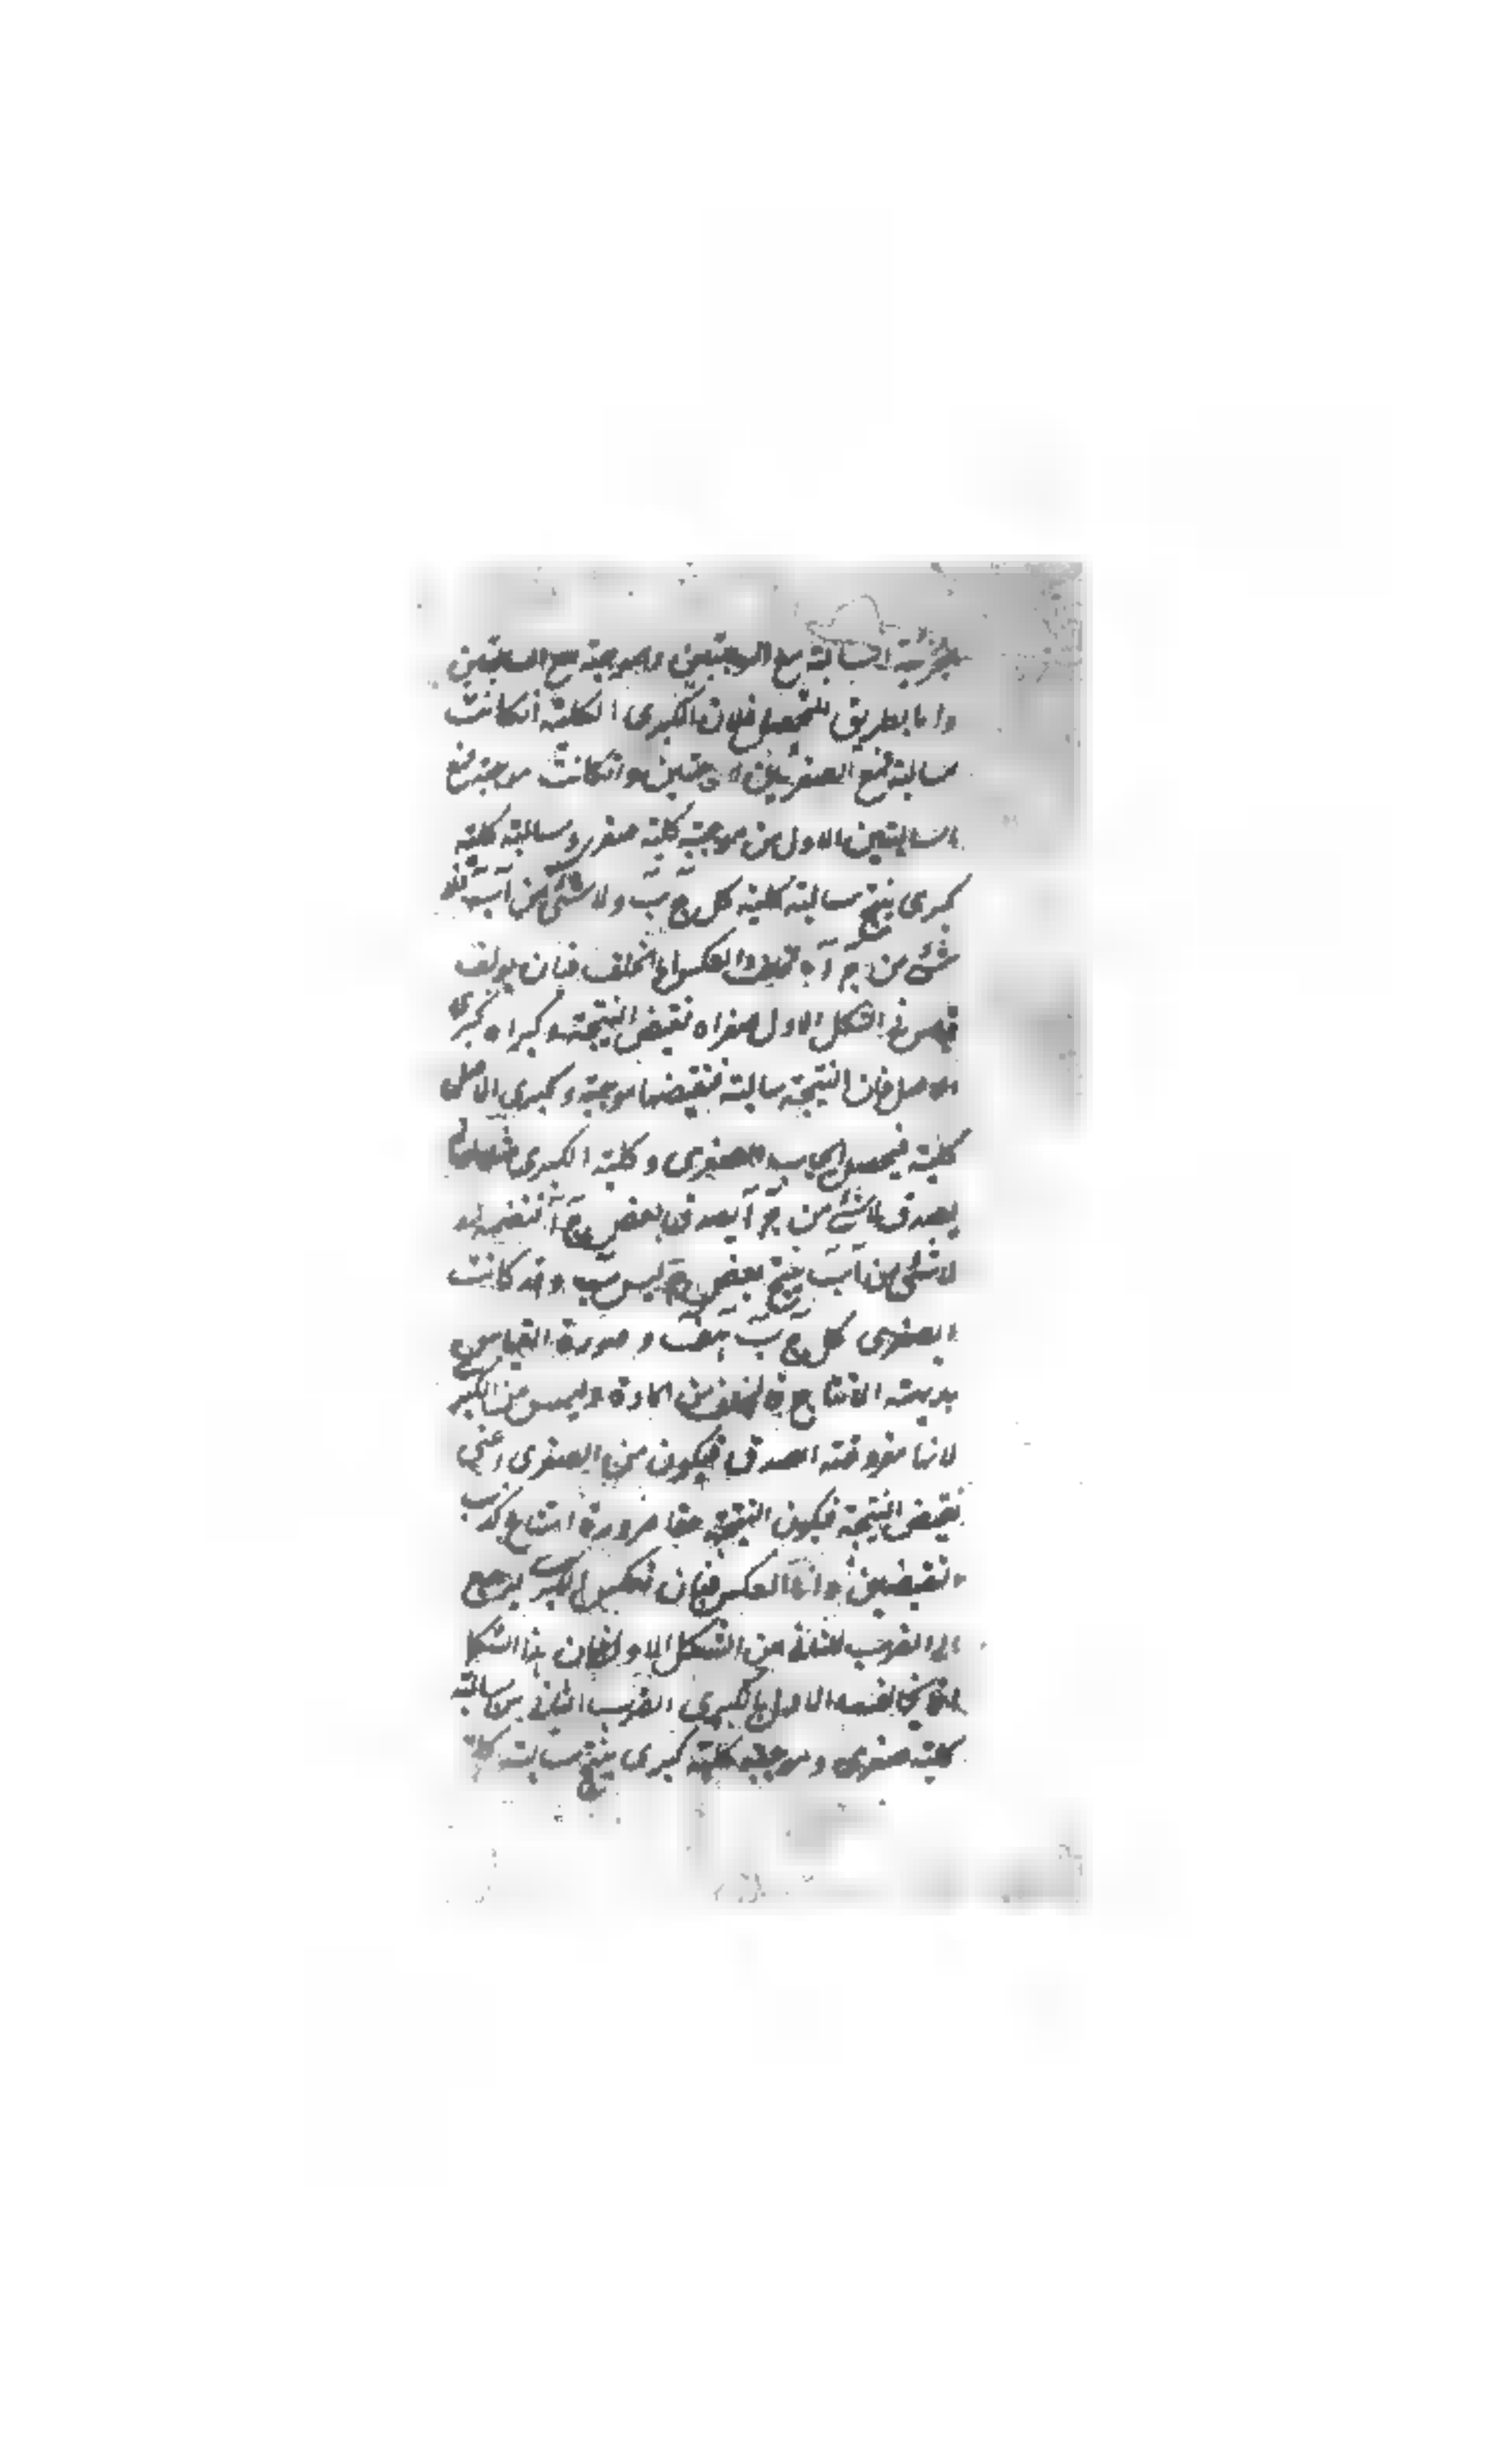 الجزئية السالبة مع الموجبتين والموجبة مع السالبتين
واما بطريق التحصيل فلان الكبرى الكلية ان كانت
سالبة فمع الصغريين الموجبتين وان كانت موجبة فمع
السالبتين الاول من موجبة كلية صغرى وسالبة كلية
كبرى ينتج سالبة كلية كل ج ب ولا شئ من آ ب فلا
شئ من ج آ والعكس اما الخلف فبان يؤلف
قياس فى الشكل الاول صغراه نقيض النتيجة وكبراه كبرى
الاصل فان النتيجة سالبة فنقيضها موجبة وكبرى الاصل
كلية فيحصل ايجاب الصغرى وكلية الكبرى
يصدق لا شئ من ج آ يصدق بعض ج آ
لا شئ من آ ب ينتج بعض ج ليس ب وقد كانت
الصغرى كل ج ب هف وصورة القياس
بديهية الانتاج فالخلف من المادة وليس من الكبرى
لانها مفروضة الصدق فيكون من الصغرى اعنى
نقيض النتيجة فيكون النتيجة حقا ضرورة امتناع كذب
النقيضين واما العكس فبان نعكس الكبرى ليرجع
الى الضرب الثانى من الشكل الاول فان هذا الشكل
انما يخالف الاول بالكبرى الضرب الثانى من سالبة
كلية صغرى وموجبة كلية كبرى ينتج سالبة كلية